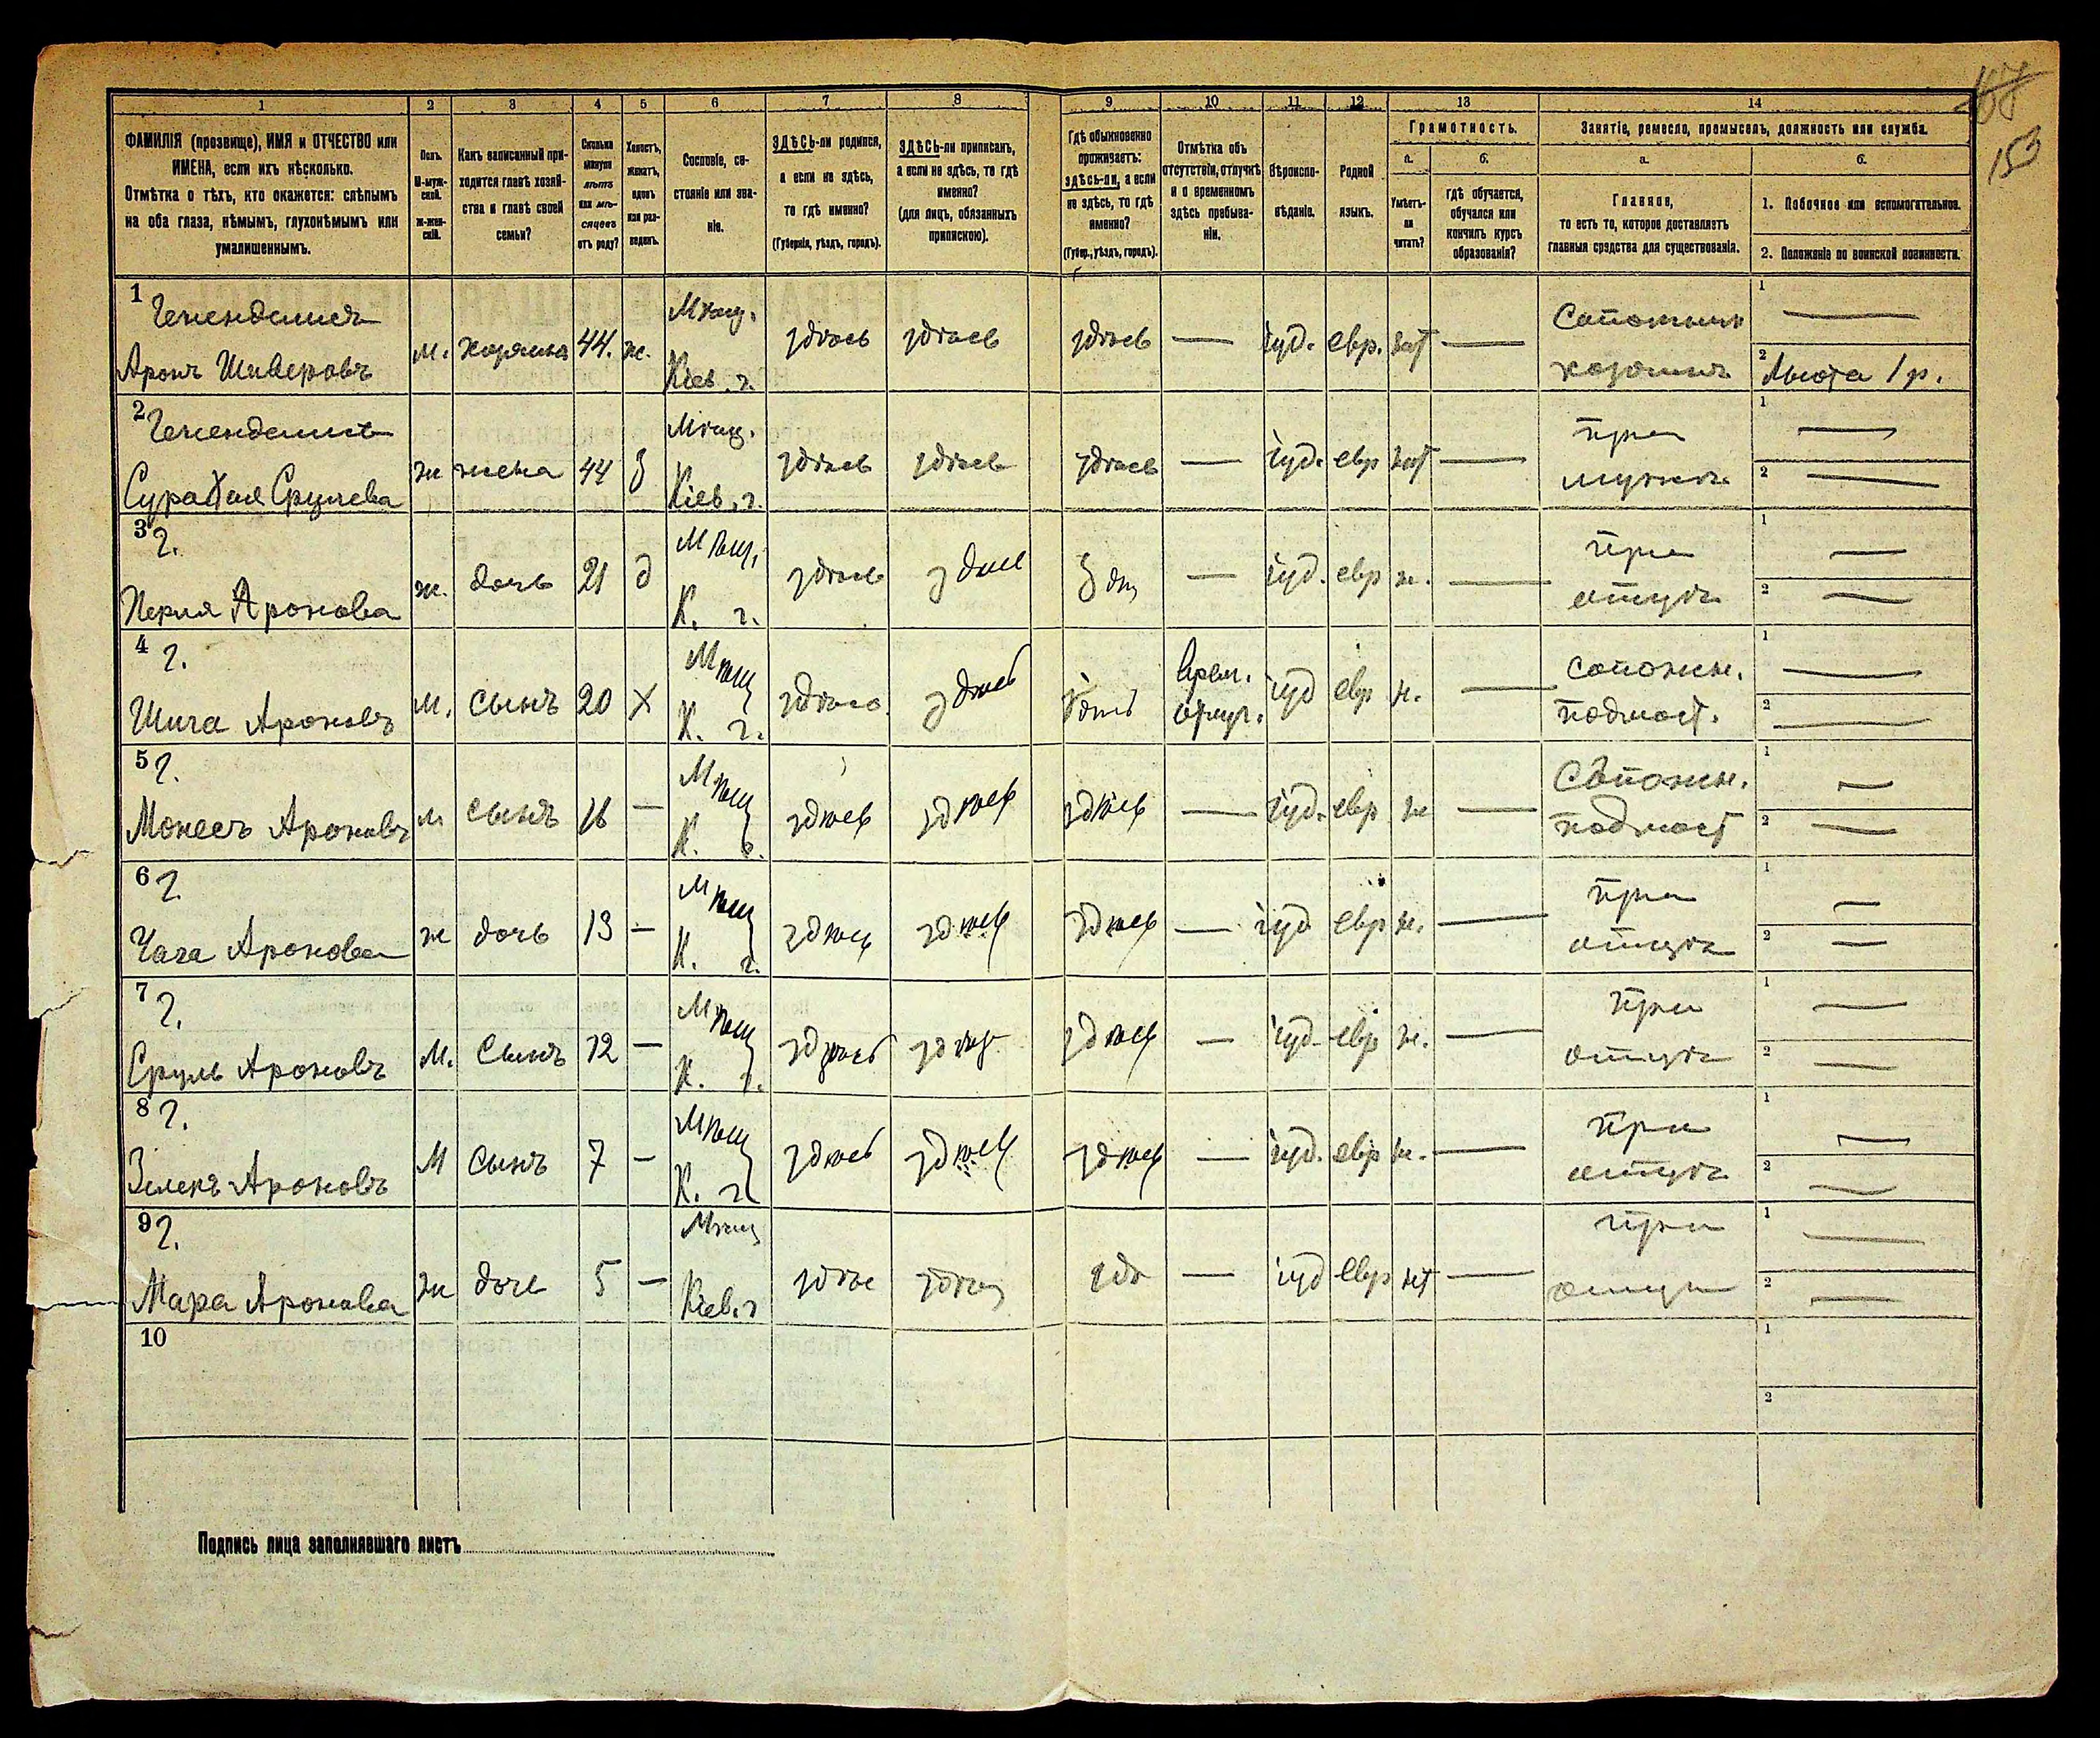 168
153
1 2 3 4 5 6 7 8 9 10 11 12 13 14
ФАМИЛІЯ (прозвище), ИМЯ и ОТЧЕСТВО или
ИМЕНА, если ихъ нѣсколько.
Отмѣтка о тѣхъ, кто окажется: слѣпымъ
на оба глаза, нѣмымъ, глухонѣмымъ или
умалишеннымъ.
Полъ.
М-муж-
ской.
Ж-жен-
скій.
Какъ записанный при-
ходится главѣ хозяй-
ства и главѣ своей
семьи?
Сколько
минуло
лѣтъ
или мѣ-
сяцевъ
отъ роду?
Холостъ,
женатъ,
вдовъ
или раз-
веденъ.
Сословіе, со-
стояніе или зва-
ніе.
ЗДѢСЬ-ли родился,
а если не здѣсь,
то гдѣ именно?
(Губернія, уѣздъ, городъ).
ЗДѢСЬ-ли приписанъ,
а если не здѣсь, то гдѣ
именно?
(для лицъ, обязанныхъ
припискою).
Гдѣ обыкновенно
проживаетъ:
здѣсь-ли, а если
не здѣсь, то гдѣ
именно?
(Губер., уѣздъ, городъ).
Отмѣтка объ
отсутствіи, отлучкѣ
и о временномъ
здѣсь пребыва-
ніи.
Вѣроиспо-
вѣданіе.
Родной
языкъ.
Грамотность.
а. б.
Умѣетъ-
ли
читать?
гдѣ обучается,
обучался или
кончилъ курсъ
образованія?
Занятіе, ремесло, промыселъ, должность или служба.
а. б.
Главное,
то есть то, которое доставляетъ
главныя средства для существованія.
1. Побочное или вспомогательное.
2. Положеніе по воинской повинности.
1
Аронъ
м. 44. ж. Мѣщ. Кіев. г. здѣсь здѣсь здѣсь — іуд. евр. —
1 —
2 Льгота 1 р.
2
Срулева
ж жена 44 З Мѣщ. Кіев. г. здѣсь здѣсь здѣсь — іуд. евр —
при
мужѣ
1 —
2 —
3 Г.
Перля Аронова
ж. дочь 21 д Мѣщ. К. г. здѣсь — іуд. евр н. —
при
отцѣ
1 —
2 —
4 Г.
Ароновъ
м. сынъ 20 Х Мѣщ К. г. іуд евр н. —
Врем.
отлуч.
сапожн.
подмаст.
1 —
2 —
5 Г.
Ароновъ
м сынъ 16 — Мѣщ К. г. здѣсь здѣсь здѣсь — іуд. евр н —
Сапожн.
подмаст
1 —
2 —
6 Г.
Аронова
ж дочь 13 — Мѣщ К. г. здѣсь здѣсь здѣсь — іуд евр н. —
при
отцѣ
1 —
2 —
7 Г.
Сруль Ароновъ
М. Сынъ 12 — Мѣщ К. г. здѣсь здѣсь здѣсь — іуд. евр н. —
при
отцѣ
1 —
2 —
8 Г.
Ароновъ
М Сынъ 7 — Мѣщ К. г. здѣсь здѣсь здѣсь — іуд. евр н. —
при
отцѣ
1 —
2 —
9 Г.
Мара Аронова
ж 5 — Мѣщ Кіев. г — іуд евр —
при
1 —
2 —
10
1
2
Подпись лица заполнявшаго листъ